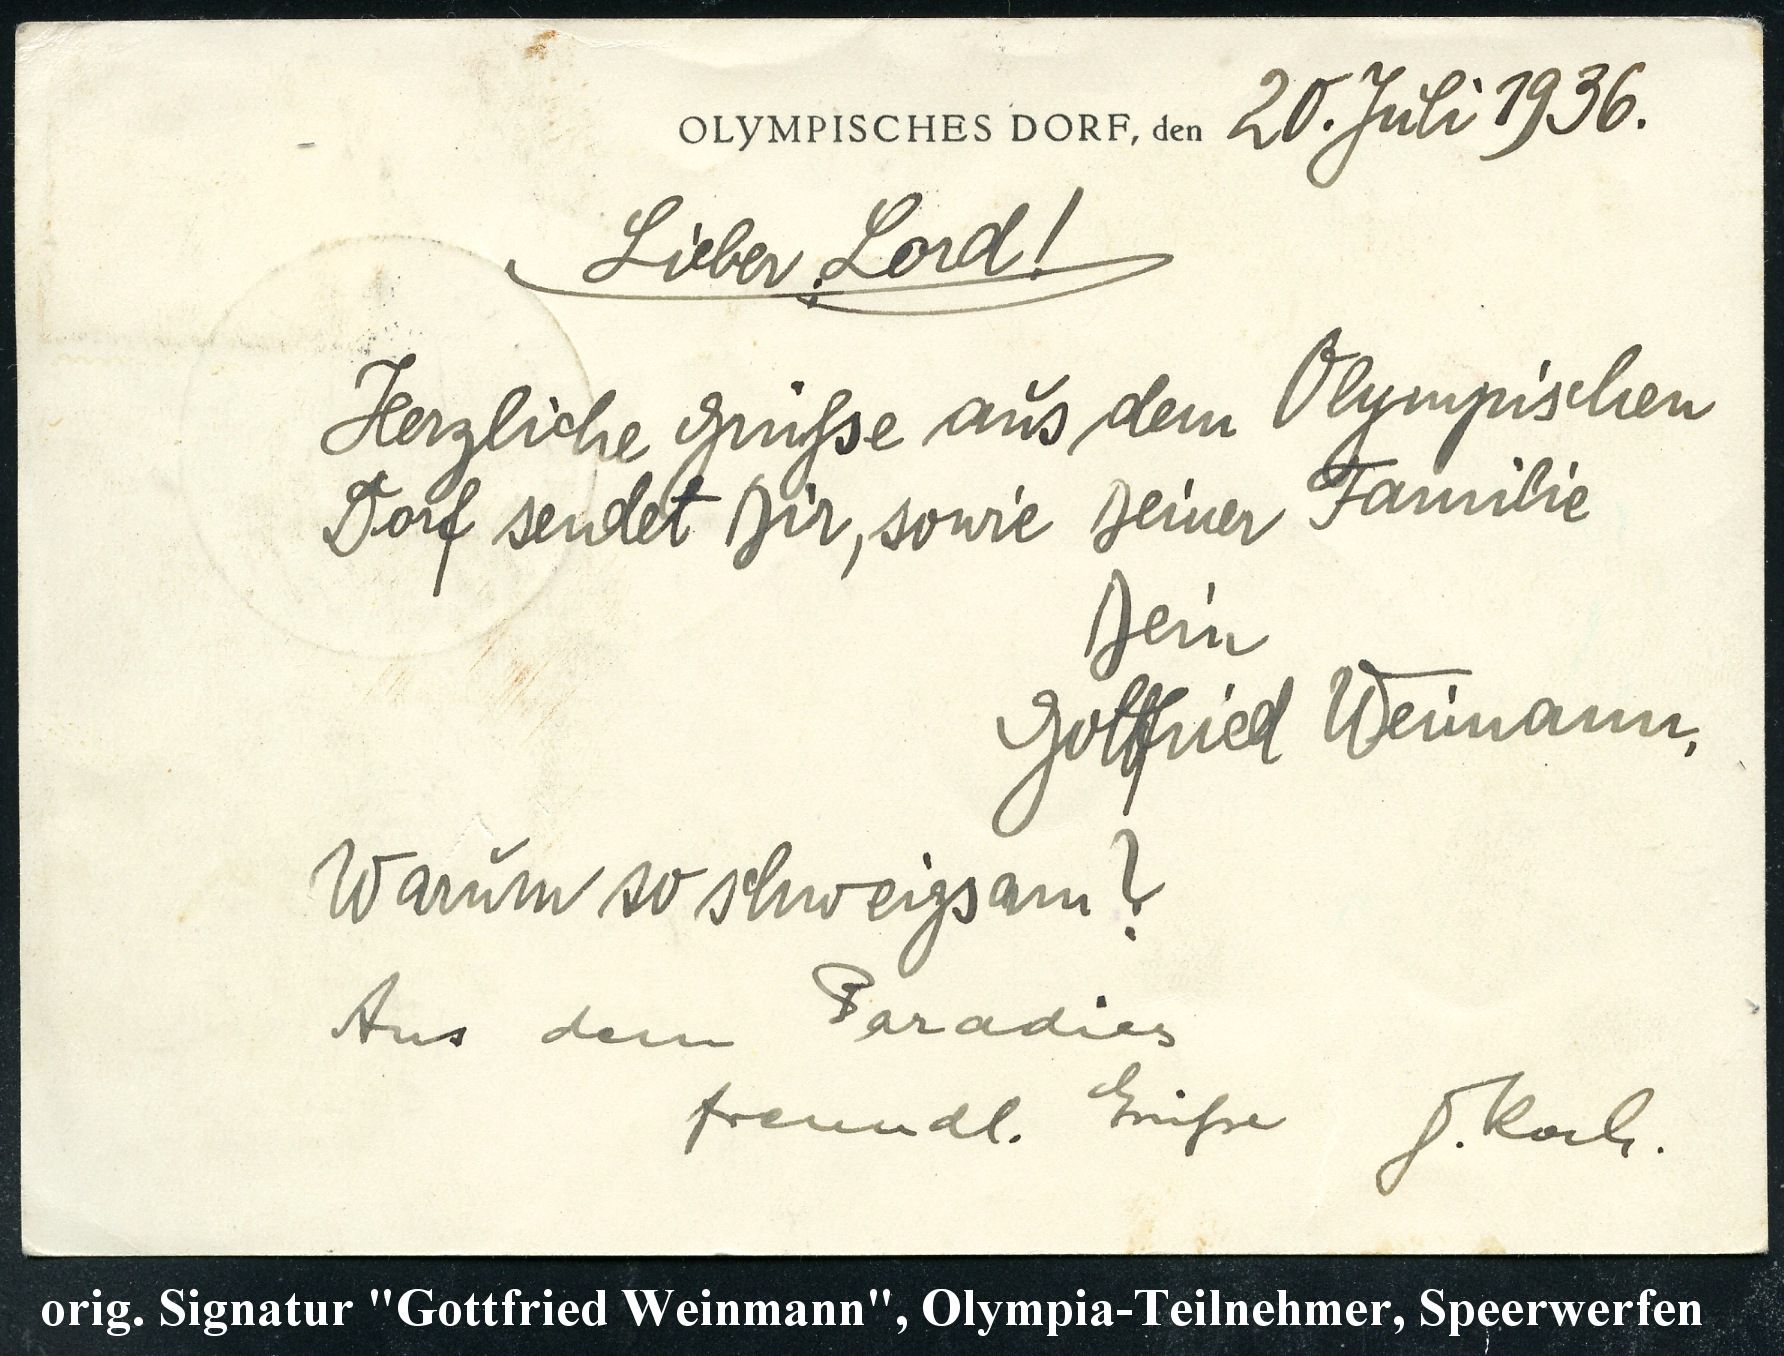 OLYMPISCHES DORF, den 20. Juli 1936.
Lieber Lord!
Herzliche Grüße aus dem Olympischen
Dorf sendet Dir, sowie Deiner Familie
Dein
Gottfried Weinmann.
Warum so schweigsam?
Aus dem Paradies
freundl. Grüße J. Koch.
orig. Signatur "Gottfried Weinmann", Olympia-Teilnehmer, Speerwerfen